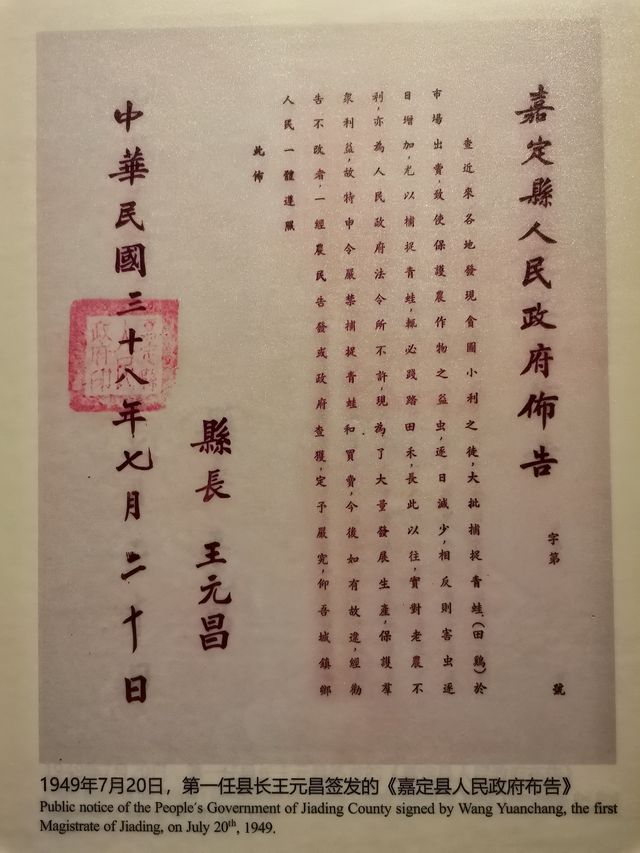 嘉定縣人民政府佈告
字第 號
查近來各地發現貪圖小利之徒,大批捕捉青蛙(田鷄)於
市場出賣,致使保護農作物之益虫,逐日減少,相反則害虫逐
日增加,尤以捕捉青蛙,輒必踐踏田禾,長此以往,實對老農不
利,亦為人民政府法令所不許,現為了大量發展生產,保護羣
衆利益,故特申令嚴禁捕捉青蛙和買賣,今後如有故違,經勸
告不改者,一經農民告發或政府查獲,定予嚴究,仰吾城鎮鄉
人民一體遵照
此佈
縣長 王元昌
中華民國三十八年七月二十日
1949年7月20日，第一任县长王元昌签发的《嘉定县人民政府布告》
Public notice of the People's Government of Jiading County signed by Wang Yuanchang, the first
Magistrate of Jiading, on July 20th, 1949.